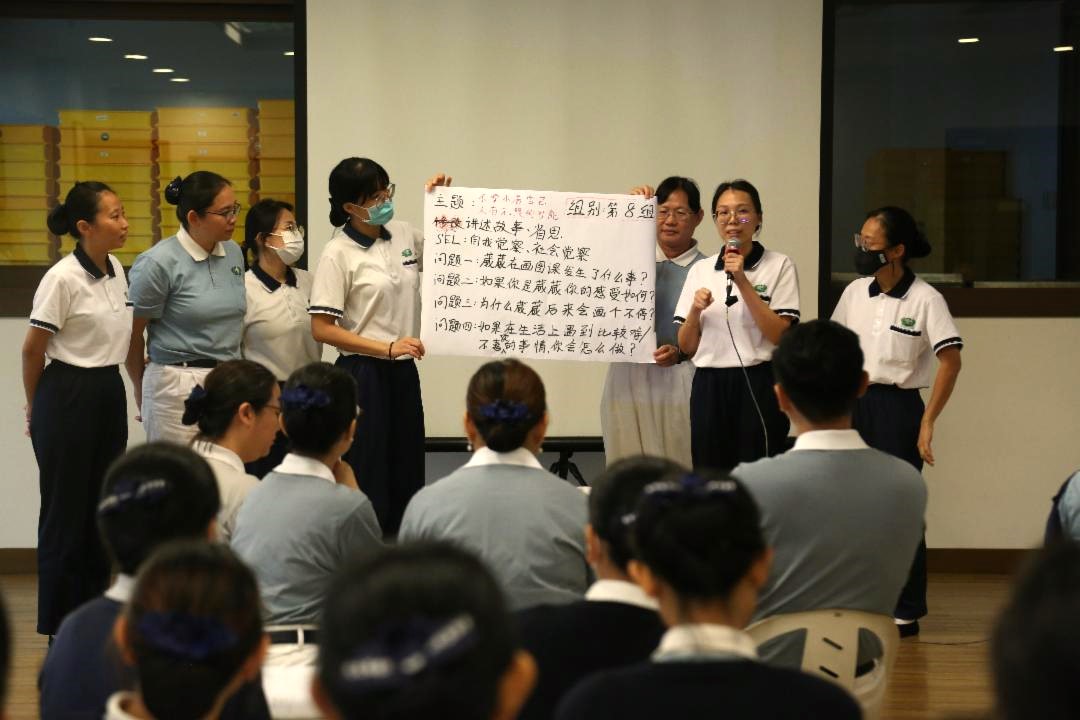 主题: 不要小看自己 组别:第8组
人有无限的可能
讲述故事、省思.
SEL: 自我觉察、社会觉察
问题一: 葳葳在画图课发生了什么事?
问题二: 如果你是葳葳你的感受如何?
问题三: 为什么葳葳后来会画个不停?
问题四: 如果在生活上遇到比较
的事情,你会怎么做?